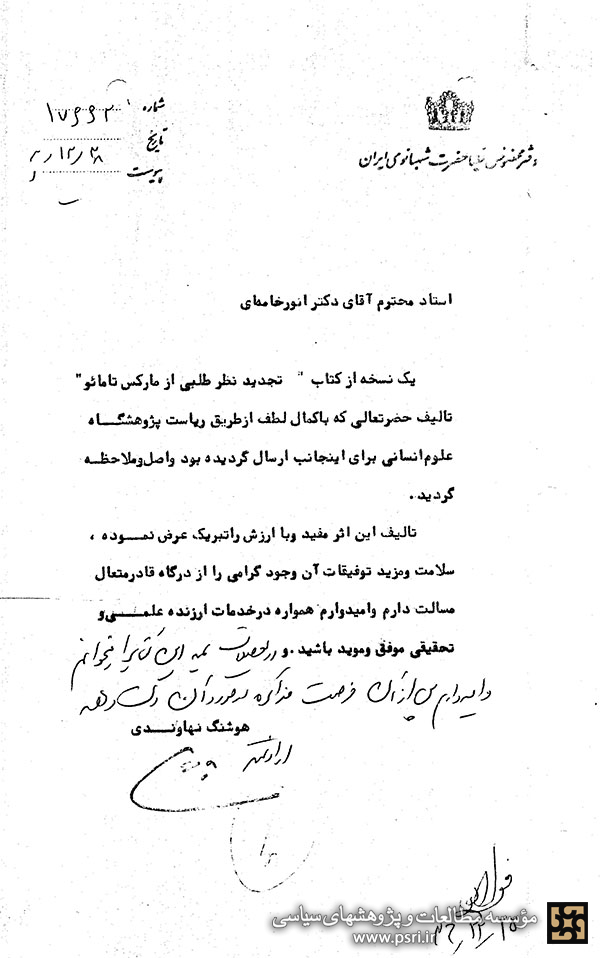 دفتر مخصوص علیاحضرت شهبانوی ایران
شماره ۱۷۶۶۲
تاریخ ۱۲/۲۸
پیوست
استاد محترم آقای دکتر انورخامه‌ای
یک نسخه از کتاب " تجدید نظر طلبی از مارکس تا مائو"
تالیف حضرتعالی که باکمال لطف ازطریق ریاست پژوهشگاه
علوم‌انسانی برای اینجانب ارسال گردیده بود واصل‌وملاحظه
گردید.
تالیف این اثر مفید وبا ارزش راتبریک عرض نموده ،
سلامت ومزید توفیقات آن وجود گرامی را از درگاه قادرمتعال
مسالت دارم وامیدوارم همواره درخدمات ارزنده علمی‌و
تحقیقی موفق وموید باشید.و در تعطیلات این کتاب را بخوانم
و امیدوارم پس از آن فرصت مذاکره در مورد آن دست دهد
هوشنگ نهاوندی
ارادتمند
مؤسسه مطالعات و پژوهشهای سیاسی
www.psri.ir